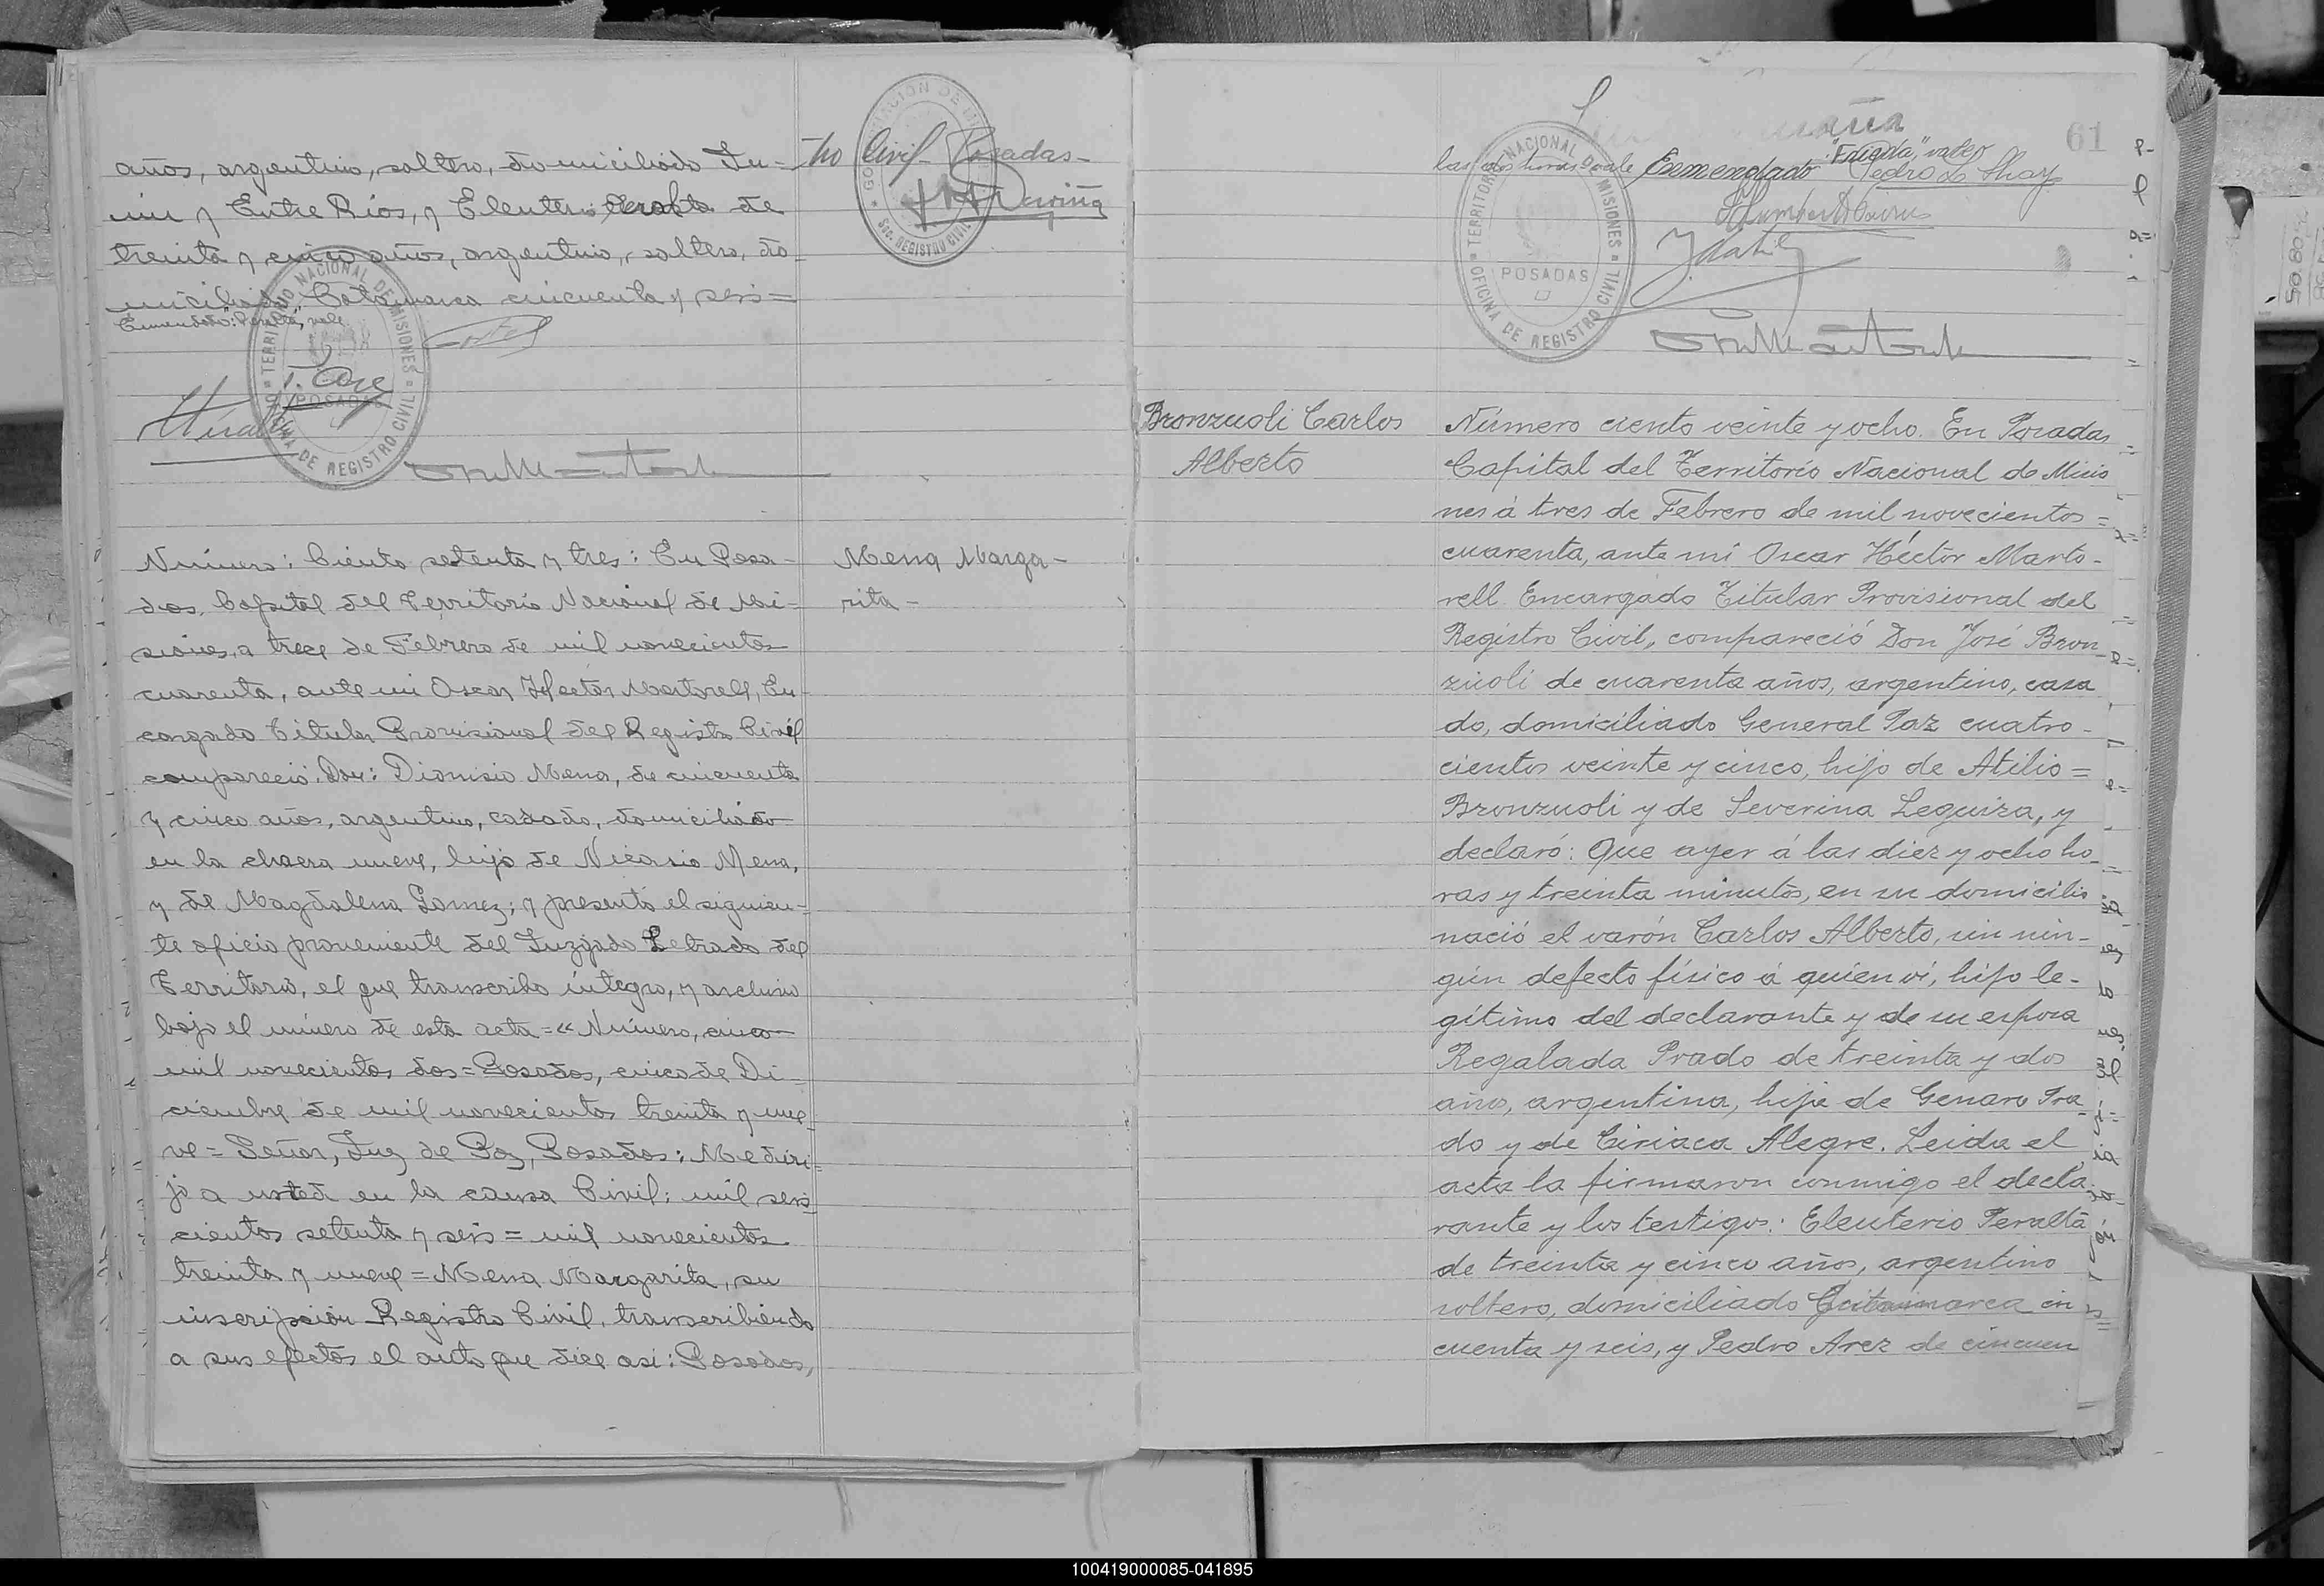 años, argentino, soltero, domiciliado Ju-
nin y Entre Rios, y Eleuterio Peralta de
treinta y cinco años, argentino, soltero, do-
miciliado Catamarca cincuenta y seis=
Enmendado: "Peralta", vale
TERRITORIO NACIONAL DE MISIONES
POSADAS
OFICINA DE REGISTRO CIVIL
Número: Ciento setenta y tres: En Posa-
das, Capital del Territorio Nacional de Mi-
siones, a trece de Febrero de mil novecientos
cuarenta, ante mi Oscar Hector Martorell, En-
cargado Titular Provisional del Registro Civil
compareció: Don: Dionisio Mena, de cincuenta
y cinco años, argentino, casado, domiciliado
en la chacra nueve, hijo de Nicasio Mena,
y de Magdalena Gomez; y presentó el siguien-
te oficio proveniente del Juzgado Letrado del
Territorio, el que transcribo íntegro, y archivo
bajo el número de esta acta=« Número, cinco
mil novecientos dos= Posadas, cinco de Di-
ciembre de mil novecientos treinta y nue-
ve= Señor, Juez de Paz, Posadas: Me diri-
jo a usted en la causa Civil: mil seis
cientos setenta y seis= mil novecientos
treinta y nueve= Mena Margarita, su
inscripción Registro Civil, transcribiendo
a sus efectos el auto que dice asi: Posadas,
tro Civil- Posadas-
SEC. REGISTRO CIVIL
Mena Marga-
rita-
61
las dos horas vale Enmendado: "Frieda", vale
TERRITORIO NACIONAL DE MISIONES
POSADAS
OFICINA DE REGISTRO CIVIL
Bronzuoli Carlos
Alberto
Número ciento veinte y ocho. En Posadas
Capital del Territorio Nacional de Misio
nes á tres de Febrero de mil novecientos=
cuarenta, ante mi Oscar Héctor Marto-
rell Encargado Titular Provisional del
Registro Civil, compareció Don José Bron
zuoli de cuarenta años, argentino, casa
do, domiciliado General Paz cuatro-
cientos veinte y cinco, hijo de Atilio=
Bronzuoli y de Severina Leguiza, y
declaró: Que ayer á las diez y ocho ho-
ras y treinta minutos, en su domicilio
nació el varón Carlos Alberto, sin nin-
gún defecto físico á quien ví, hijo le-
gítimo del declarante y de su esposa
Regalada Prado de treinta y dos
años, argentina, hija de Genaro Pra
do y de Ciriaca Alegre. Leida el
acta la firmaron conmigo el decla-
rante y los testigos: Eleuterio Peralta
de treinta y cinco años, argentino
soltero, domiciliado Catamarca cin
cuenta y seis, y Pedro Arez de cincuen
100419000085-041895